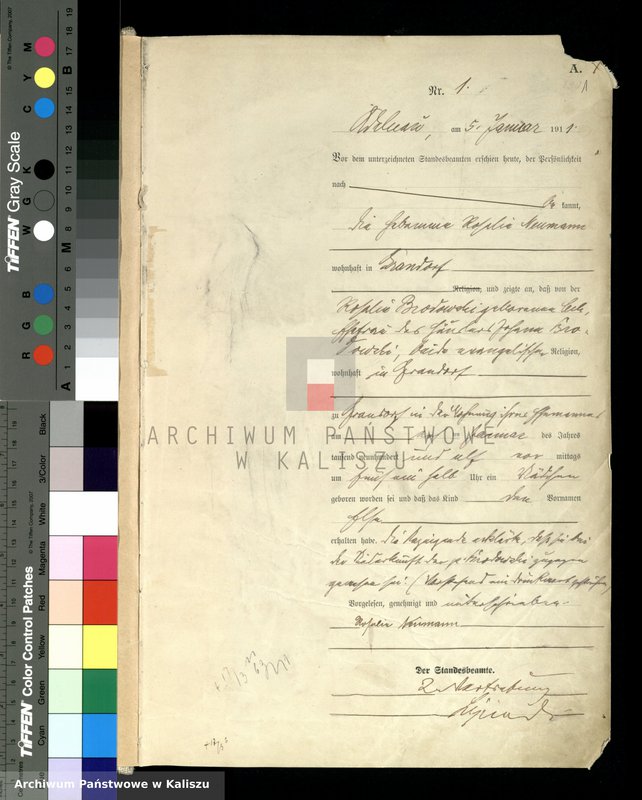 A.
1
Nr. 1.
Adelnau, am 5. Januar 1911.
Vor dem unterzeichneten Standesbeamten erschien heute, der Persönlichkeit
nach
kannt,
die Hebamme Rosalie Neumann
wohnhaft in Grandorf
Religion, und zeigte an, daß von der
Rosalie Brodowski geborenen
Ehefrau des Häuslers Johann Bro-
dowski, beide evangelischer Religion,
wohnhaft in Grandorf
zu Grandorf in der Wohnung ihres Ehemannes
am Januar des Jahres
tausend neunhundert und elf vor mittags
um Uhr ein Mädchen
geboren worden sei und daß das Kind den Vornamen
Else
erhalten habe. Die Anzeigende erklärte, daß sie bei
der Niederkunft der p. Brodowski zugegen
gewesen sei. (Vorstehend ein Druckwort gestrichen)
Vorgelesen, genehmigt und unterschrieben.
Rosalie Neumann
Der Standesbeamte.
In Vertretung
ARCHIWUM PAŃSTWOWE
W KALISZU
Archiwum Państwowe w Kaliszu
TIFFEN Gray Scale
© The Tiffen Company, 2007
R G B W G K C Y M
A 1 2 3 4 5 6 M 8 9 10 11 12 13 14 15 B 17 18 19
TIFFEN Color Control Patches
© The Tiffen Company, 2007
Cyan Green Yellow Red Magenta White 3/Color Black